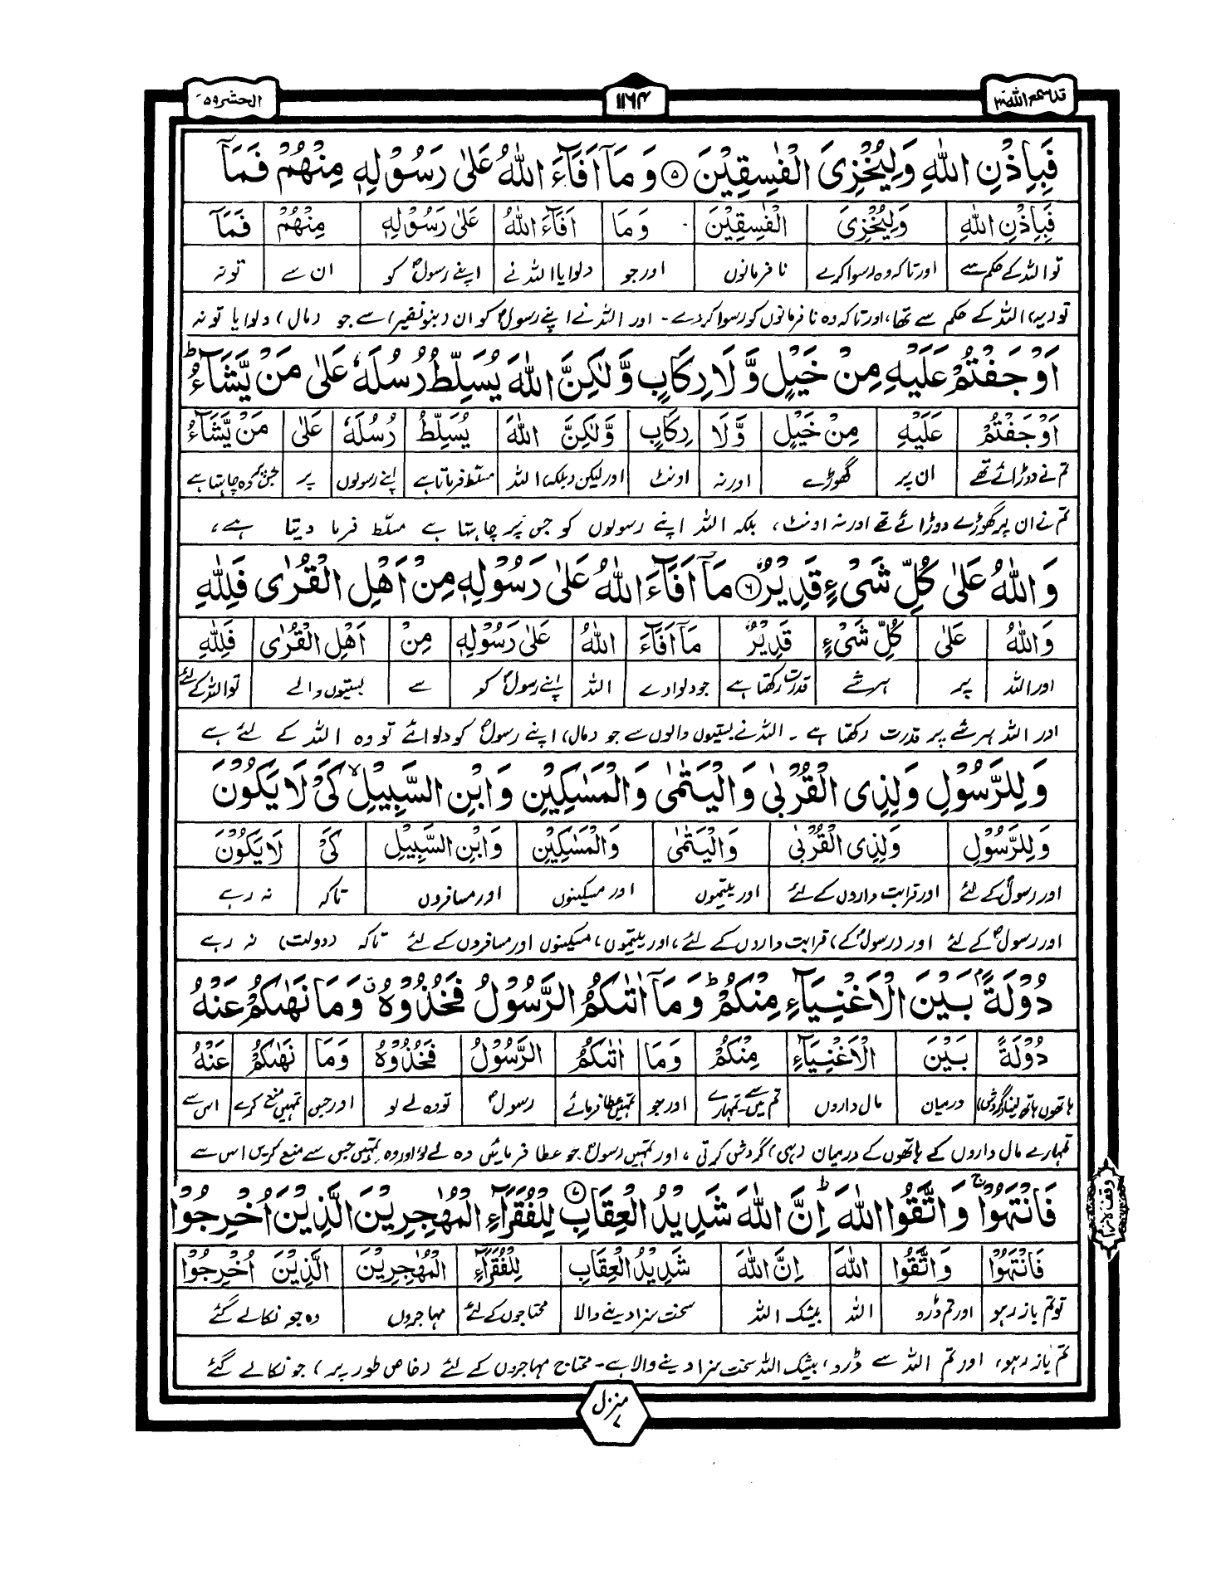 قد سمع الله ۲۸ ۱۱۶۴ الحشر ۵۹
فَبِاِذْنِ اللّٰهِ وَلِيُخْزِىَ الْفٰسِقِيْنَ ۵ وَمَآ اَفَآءَ اللّٰهُ عَلٰى رَسُوْلِهٖ مِنْهُمْ فَمَآ
فَبِاِذْنِ اللّٰهِ وَلِيُخْزِىَ الْفٰسِقِيْنَ وَمَا اَفَآءَ اللّٰهُ عَلٰى رَسُوْلِهٖ مِنْهُمْ فَمَآ
تو اللہ کے حکم سے اور تاکہ وہ رسوا کرے نافرمانوں اور جو دلوایا اللہ نے اپنے رسولؐ کو ان سے تو نہ
تو (یہ) اللہ کے حکم سے تھا، اور تاکہ وہ نافرمانوں کو رسوا کر دے۔ اور اللہ نے اپنے رسولؐ کو ان (بنو نضیر) سے جو (مال) دلوایا تو نہ
اَوْجَفْتُمْ عَلَيْهِ مِنْ خَيْلٍ وَّلَا رِكَابٍ وَّلٰكِنَّ اللّٰهَ يُسَلِّطُ رُسُلَهٗ عَلٰى مَنْ يَّشَآءُ ؕ
اَوْجَفْتُمْ عَلَيْهِ مِنْ خَيْلٍ وَّلَا رِكَابٍ وَّلٰكِنَّ اللّٰهَ يُسَلِّطُ رُسُلَهٗ عَلٰى مَنْ يَّشَآءُ
تم نے دوڑائے تھے ان پر گھوڑے اور نہ اونٹ اور لیکن (بلکہ) اللہ مسلط فرماتا ہے اپنے رسولوں پر جس پر وہ چاہتا ہے
تم نے ان پر گھوڑے دوڑائے تھے اور نہ اونٹ، بلکہ اللہ اپنے رسولوں کو جس پر چاہتا ہے مسلط فرما دیتا ہے،
وَاللّٰهُ عَلٰى كُلِّ شَىْءٍ قَدِيْرٌ ۶ مَآ اَفَآءَ اللّٰهُ عَلٰى رَسُوْلِهٖ مِنْ اَهْلِ الْقُرٰى فَلِلّٰهِ
وَاللّٰهُ عَلٰى كُلِّ شَىْءٍ قَدِيْرٌ مَآ اَفَآءَ اللّٰهُ عَلٰى رَسُوْلِهٖ مِنْ اَهْلِ الْقُرٰى فَلِلّٰهِ
اور اللہ پر ہر شے قدرت رکھتا ہے جو دلوا دے اللہ اپنے رسولؐ کو سے بستیوں والے تو اللہ کے لئے
اور اللہ ہر شے پر قدرت رکھتا ہے۔ اللہ نے بستیوں والوں سے جو (مال) اپنے رسولؐ کو دلوائے تو وہ اللہ کے لئے ہے
وَلِلرَّسُوْلِ وَلِذِى الْقُرْبٰى وَالْيَتٰمٰى وَالْمَسٰكِيْنِ وَابْنِ السَّبِيْلِ ۙ كَىْ لَا يَكُوْنَ
وَلِلرَّسُوْلِ وَلِذِى الْقُرْبٰى وَالْيَتٰمٰى وَالْمَسٰكِيْنِ وَابْنِ السَّبِيْلِ كَىْ لَا يَكُوْنَ
اور رسولؐ کے لئے اور قرابت داروں کے لئے اور یتیموں اور مسکینوں اور مسافروں تاکہ نہ رہے
اور رسولؐ کے لئے اور (رسولؐ کے) قرابت داروں کے لئے، اور یتیموں، مسکینوں اور مسافروں کے لئے تاکہ (دولت) نہ رہے
دُوْلَةًۢ بَيْنَ الْاَغْنِيَآءِ مِنْكُمْ ؕ وَمَآ اٰتٰىكُمُ الرَّسُوْلُ فَخُذُوْهُ ۚ وَمَا نَهٰىكُمْ عَنْهُ
دُوْلَةً بَيْنَ الْاَغْنِيَآءِ مِنْكُمْ وَمَا اٰتٰىكُمُ الرَّسُوْلُ فَخُذُوْهُ وَمَا نَهٰىكُمْ عَنْهُ
ہاتھوں ہاتھ لینا (گردش) درمیان مال داروں تم میں سے تمہارے اور جو تمہیں عطا فرمائے رسولؐ تو وہ لے لو اور جس تمہیں منع کرے اس سے
تمہارے مال داروں کے ہاتھوں کے درمیان (ہی) گردش کرتی، اور تمہیں رسولؐ جو عطا فرمائیں وہ لے لو اور وہ تمہیں جس سے منع کریں اس سے
فَانْتَهُوْا ۚ وَاتَّقُوا اللّٰهَ ؕ اِنَّ اللّٰهَ شَدِيْدُ الْعِقَابِ ۷ لِلْفُقَرَآءِ الْمُهٰجِرِيْنَ الَّذِيْنَ اُخْرِجُوْا
وقف لازم
فَانْتَهُوْا وَاتَّقُوا اللّٰهَ اِنَّ اللّٰهَ شَدِيْدُ الْعِقَابِ لِلْفُقَرَآءِ الْمُهٰجِرِيْنَ الَّذِيْنَ اُخْرِجُوْا
تو تم باز رہو اور تم ڈرو اللہ بیشک اللہ سخت سزا دینے والا محتاجوں کے لئے مہاجروں وہ جو نکالے گئے
تم باز رہو، اور تم اللہ سے ڈرو، بیشک اللہ سخت سزا دینے والا ہے۔ محتاج مہاجروں کے لئے (خاص طور پر) جو نکالے گئے
منزل ۷